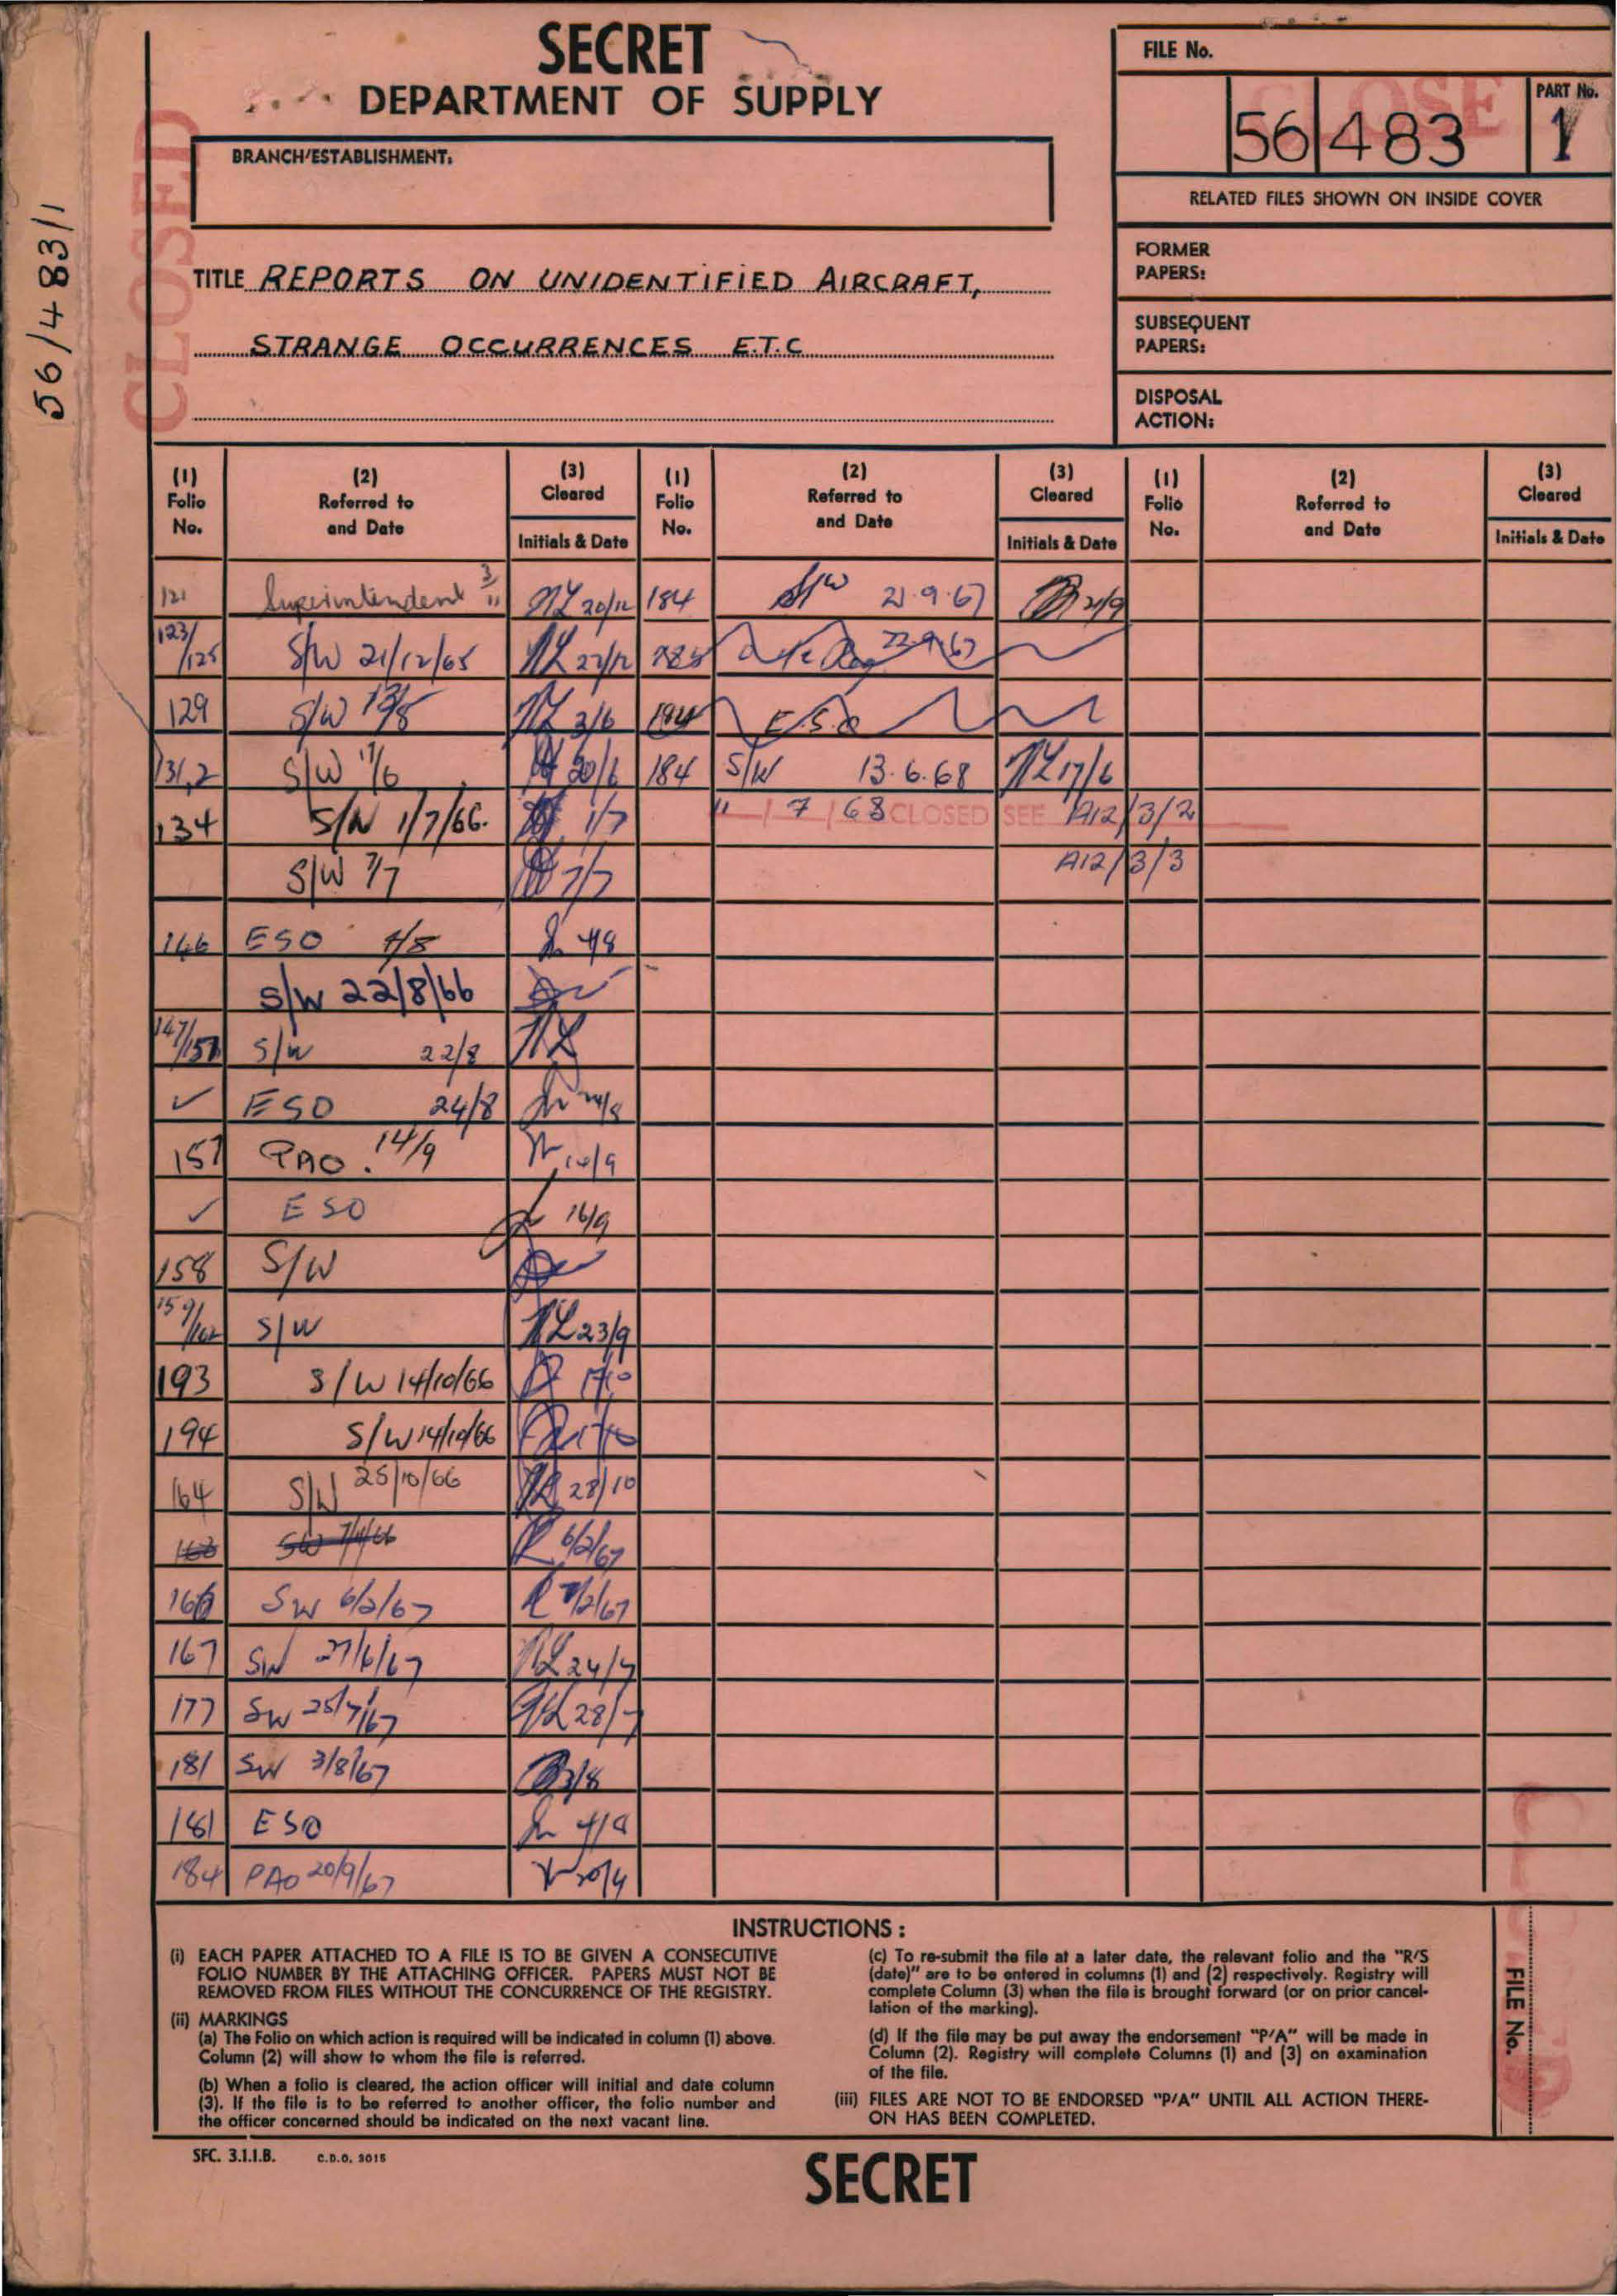 SECRET
DEPARTMENT OF SUPPLY
BRANCH/ESTABLISHMENT:
FILE No.
CLOSE
56 483
PART No.
1
RELATED FILES SHOWN ON INSIDE COVER
FORMER
PAPERS:
SUBSEQUENT
PAPERS:
DISPOSAL
ACTION:
CLOSED
56/483/1
TITLE REPORTS ON UNIDENTIFIED AIRCRAFT,
STRANGE OCCURRENCES E.T.C
(1) Folio No. (2) Referred to and Date (3) Cleared Initials & Date (1) Folio No. (2) Referred to and Date (3) Cleared Initials & Date (1) Folio No. (2) Referred to and Date (3) Cleared Initials & Date
121 Superintendent 3/11 20/12 184 S/W 21.9.67 21/9
123/125 S/W 21/12/65 22/12 185 22.9.67
129 S/W 3/6 184 ESO
131,2 S/W 17/6 20/6 184 S/W 13.6.68 17/6
134 S/W 1/7/66. 1/7 11/7/68 CLOSED SEE A12/3/2
S/W 7/7 7/7 A12/3/3
146 ESO 4/8
S/W 22/8/66
147/157 S/W 22/8
✓ ESO 24/8 24/8
157 PAO. 14/9 14/9
✓ ESO 16/9
158 S/W
159/162 S/W 23/9
193 S/W 14/10/66 17/10
194 S/W 14/10/66 17/10
164 S/W 25/10/66 28/10
163 SW 7/11/66 6/2/67
166 SW 6/2/67 7/2/67
167 SW 27/6/67 24/7
177 SW 25/7/67 28/7
181 SW 3/8/67 3/8
181 ESO
184 PAO 20/9/67 20/9
INSTRUCTIONS:
(i) EACH PAPER ATTACHED TO A FILE IS TO BE GIVEN A CONSECUTIVE
FOLIO NUMBER BY THE ATTACHING OFFICER. PAPERS MUST NOT BE
REMOVED FROM FILES WITHOUT THE CONCURRENCE OF THE REGISTRY.
(ii) MARKINGS
(a) The Folio on which action is required will be indicated in column (1) above.
Column (2) will show to whom the file is referred.
(b) When a folio is cleared, the action officer will initial and date column
(3). If the file is to be referred to another officer, the folio number and
the officer concerned should be indicated on the next vacant line.
(c) To re-submit the file at a later date, the relevant folio and the "R/S
(date)" are to be entered in columns (1) and (2) respectively. Registry will
complete Column (3) when the file is brought forward (or on prior cancel-
lation of the marking).
(d) If the file may be put away the endorsement "P/A" will be made in
Column (2). Registry will complete Columns (1) and (3) on examination
of the file.
(iii) FILES ARE NOT TO BE ENDORSED "P/A" UNTIL ALL ACTION THERE-
ON HAS BEEN COMPLETED.
FILE No.
SFC. 3.1.1.B. C.D.O. 3015
SECRET